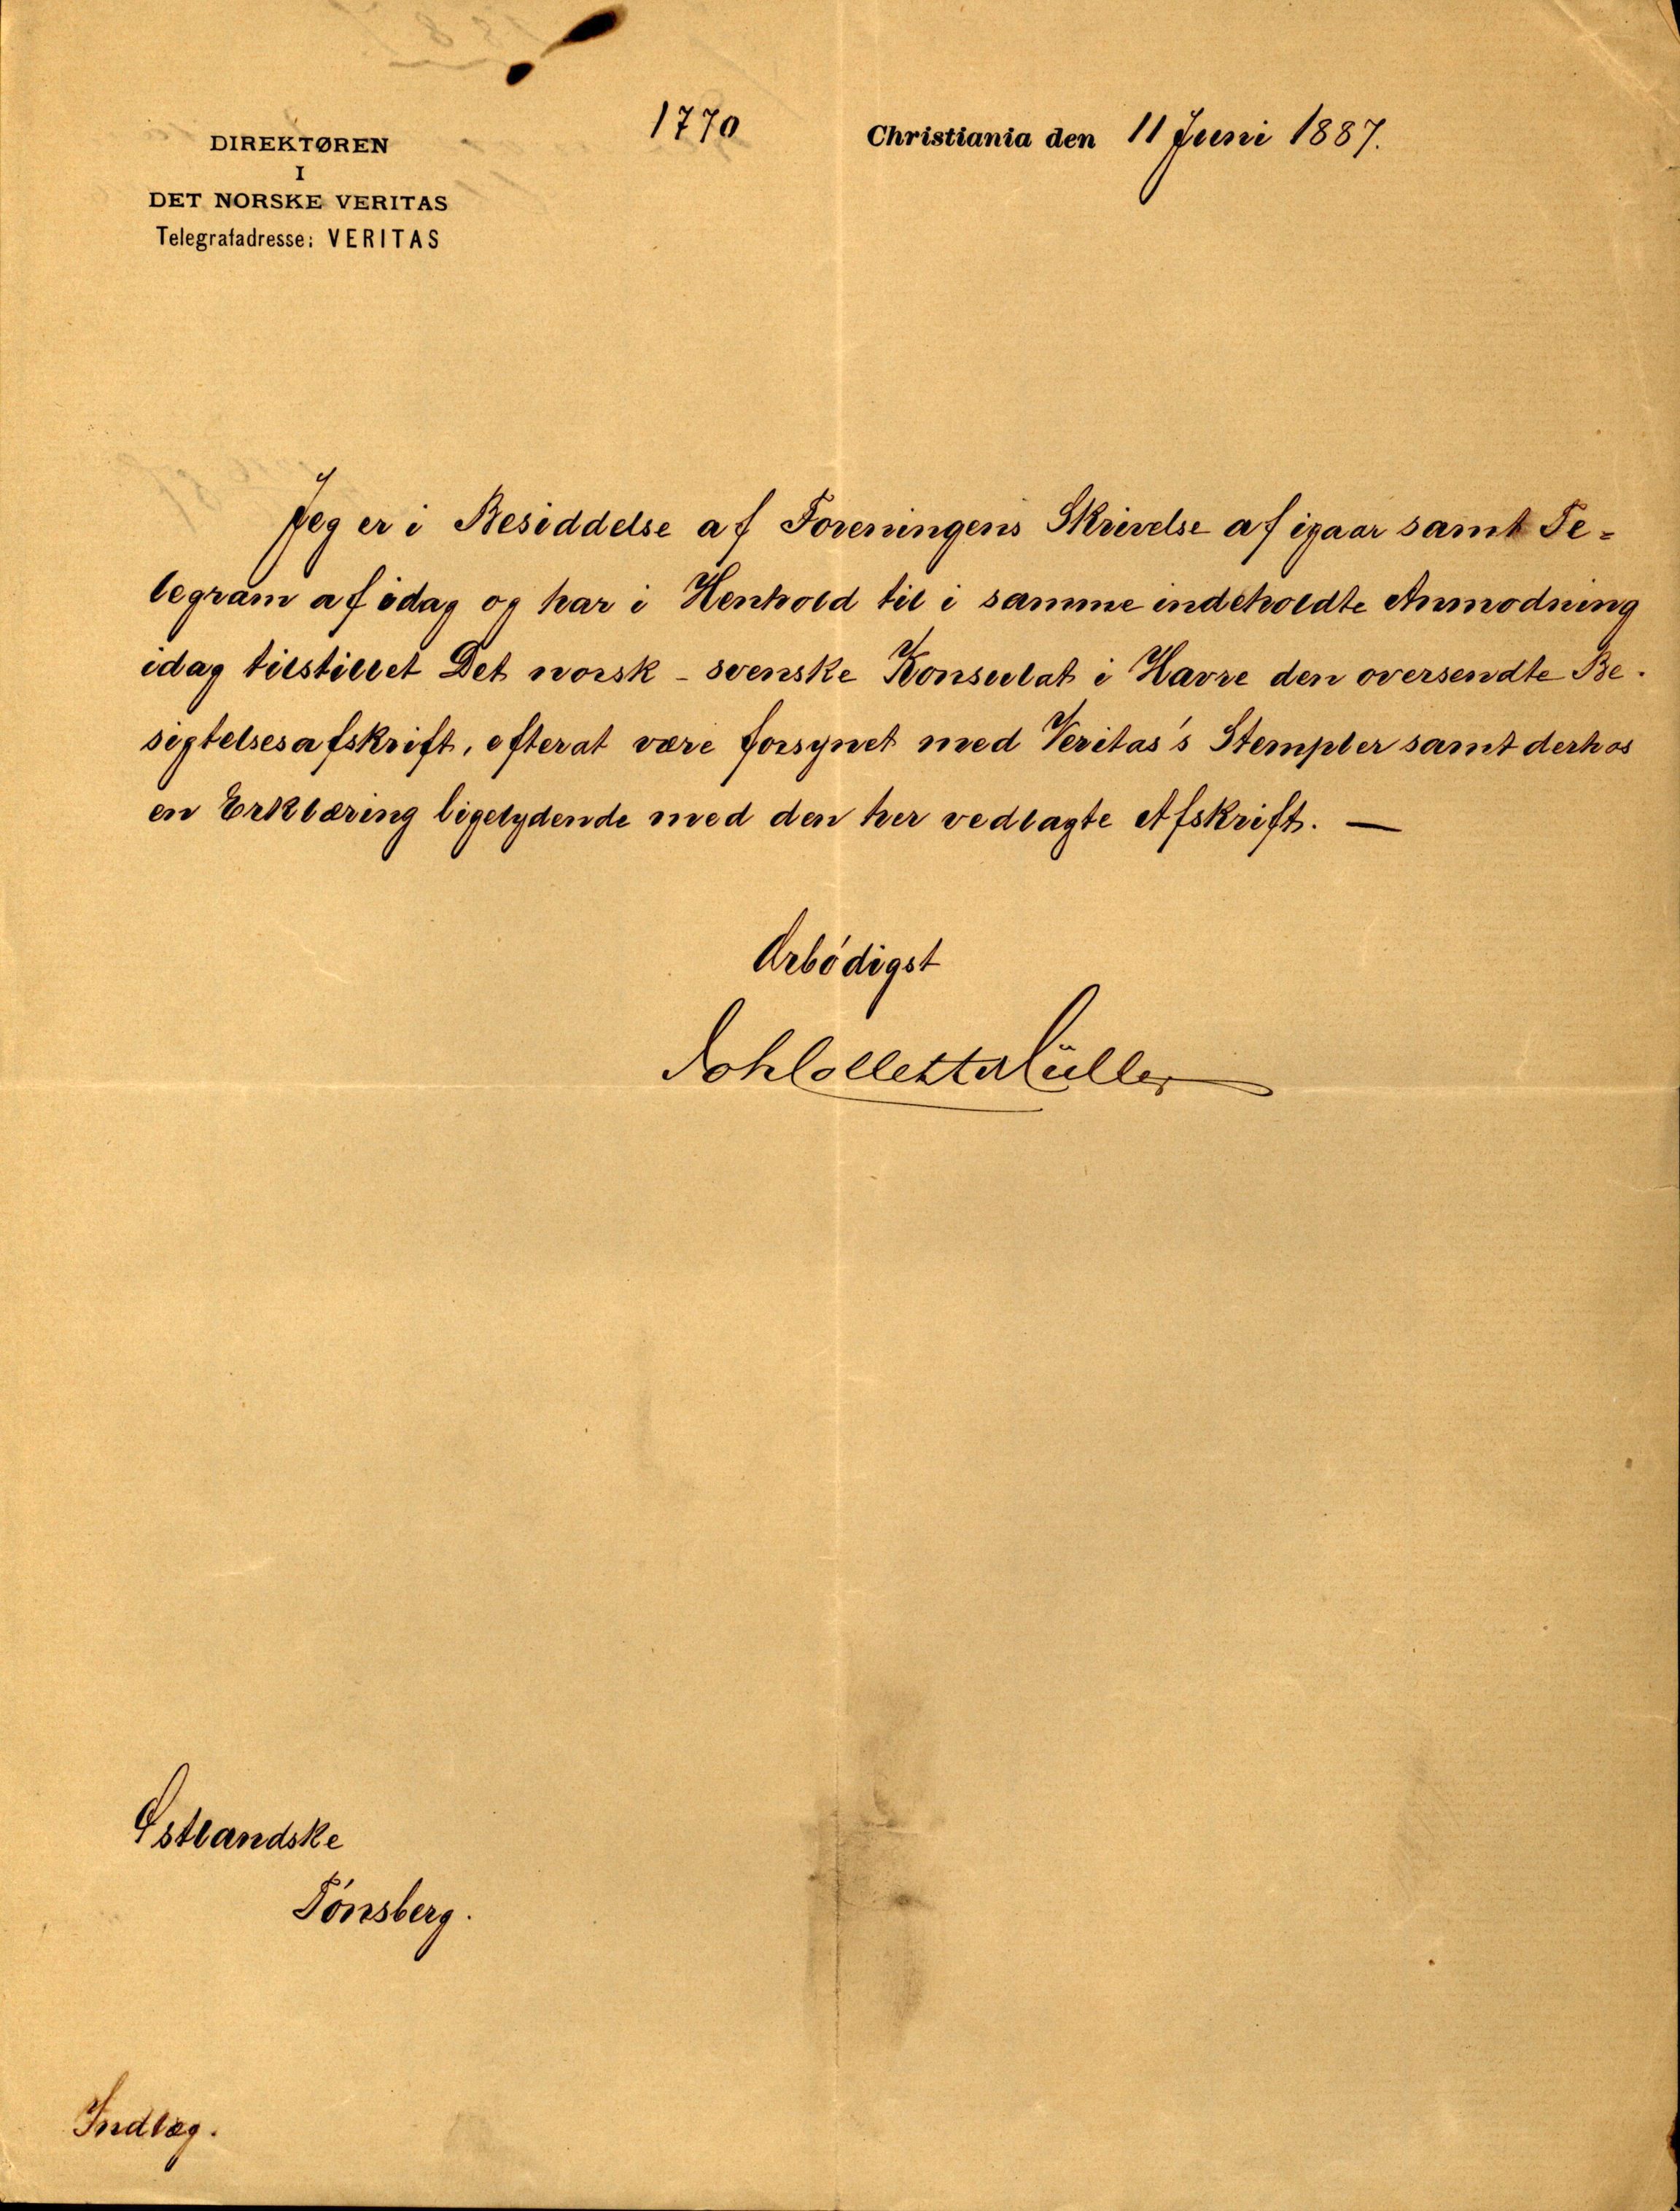 DIREKTØREN
I
DET NORSKE VERITAS
Telegrafadresse: VERITAS
1770
Christiania den 11 Juni 1887.
Jeg er i Besiddelse af Foreningens Skrivelse af igaar samt Te=
legram af idag og har i Henhold til i samme indeholdte Anmodning
idag tilstillet Det norsk - svenske Konsulat i Havre den oversendte Be-
sigtelsesafskrift, efterat være forsynet med Veritas's Stempler samt derhos
en Erklæring ligelydende med den her vedlagte Afskrift. —
Ærbødigst
Joh Collett Müller
Østlandske
Tønsberg.
Indlæg.